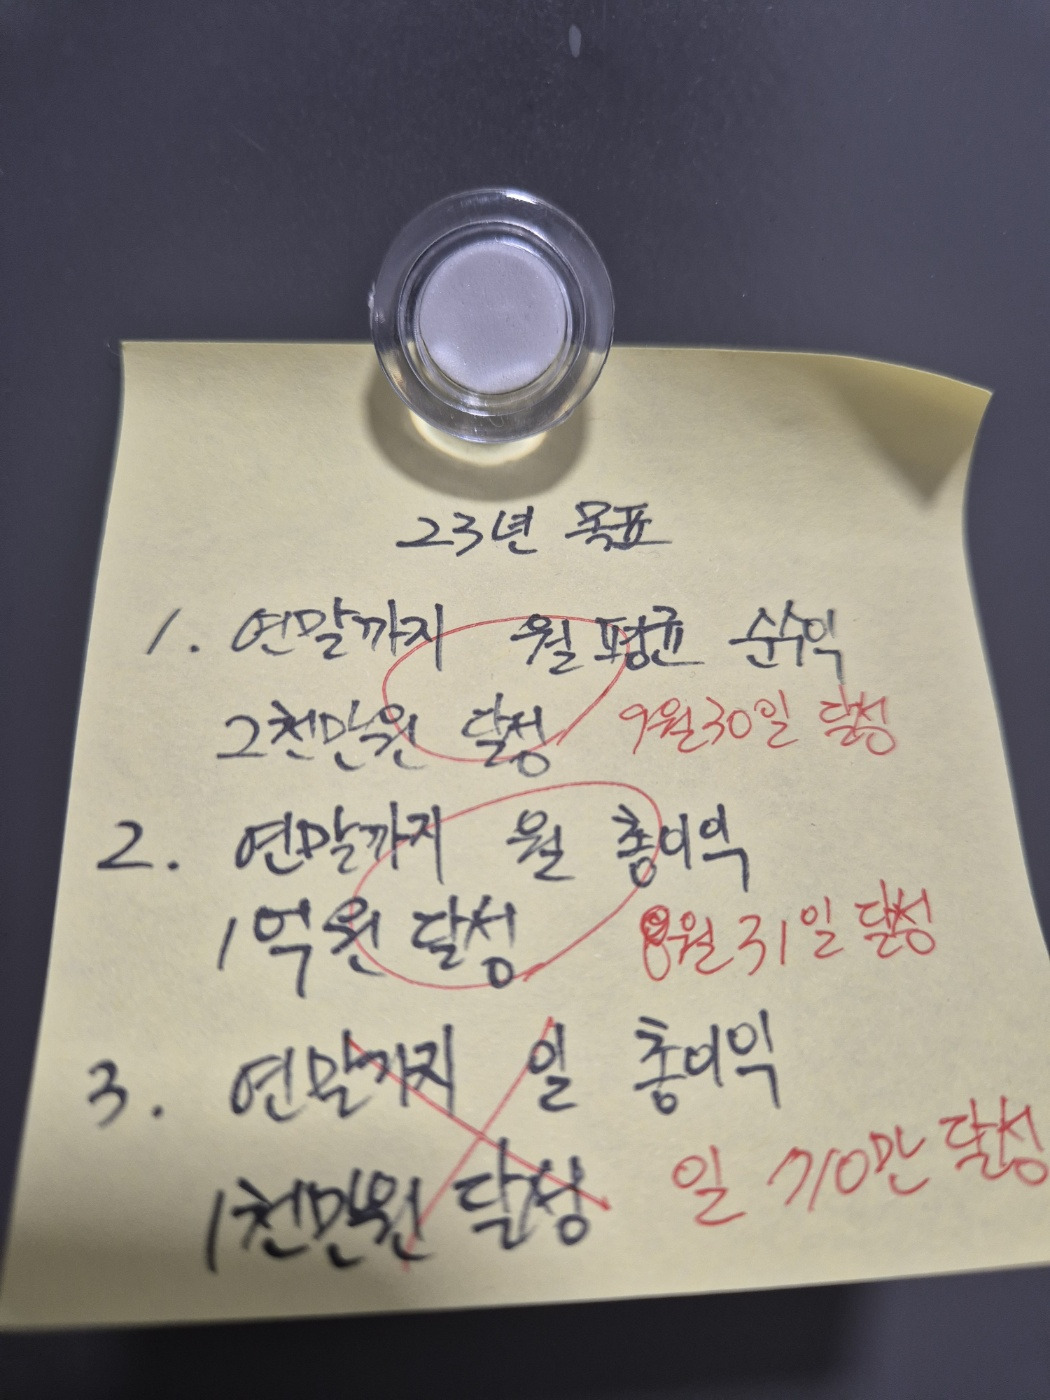 23년 목표
1. 연말까지 월 평균 순수익
2천만원 달성 9월30일 달성
2. 연말까지 월 총이익
1억원 달성 8월 31일 달성
3. 연말까지 일 총이익
1천만원 달성 일 710만 달성